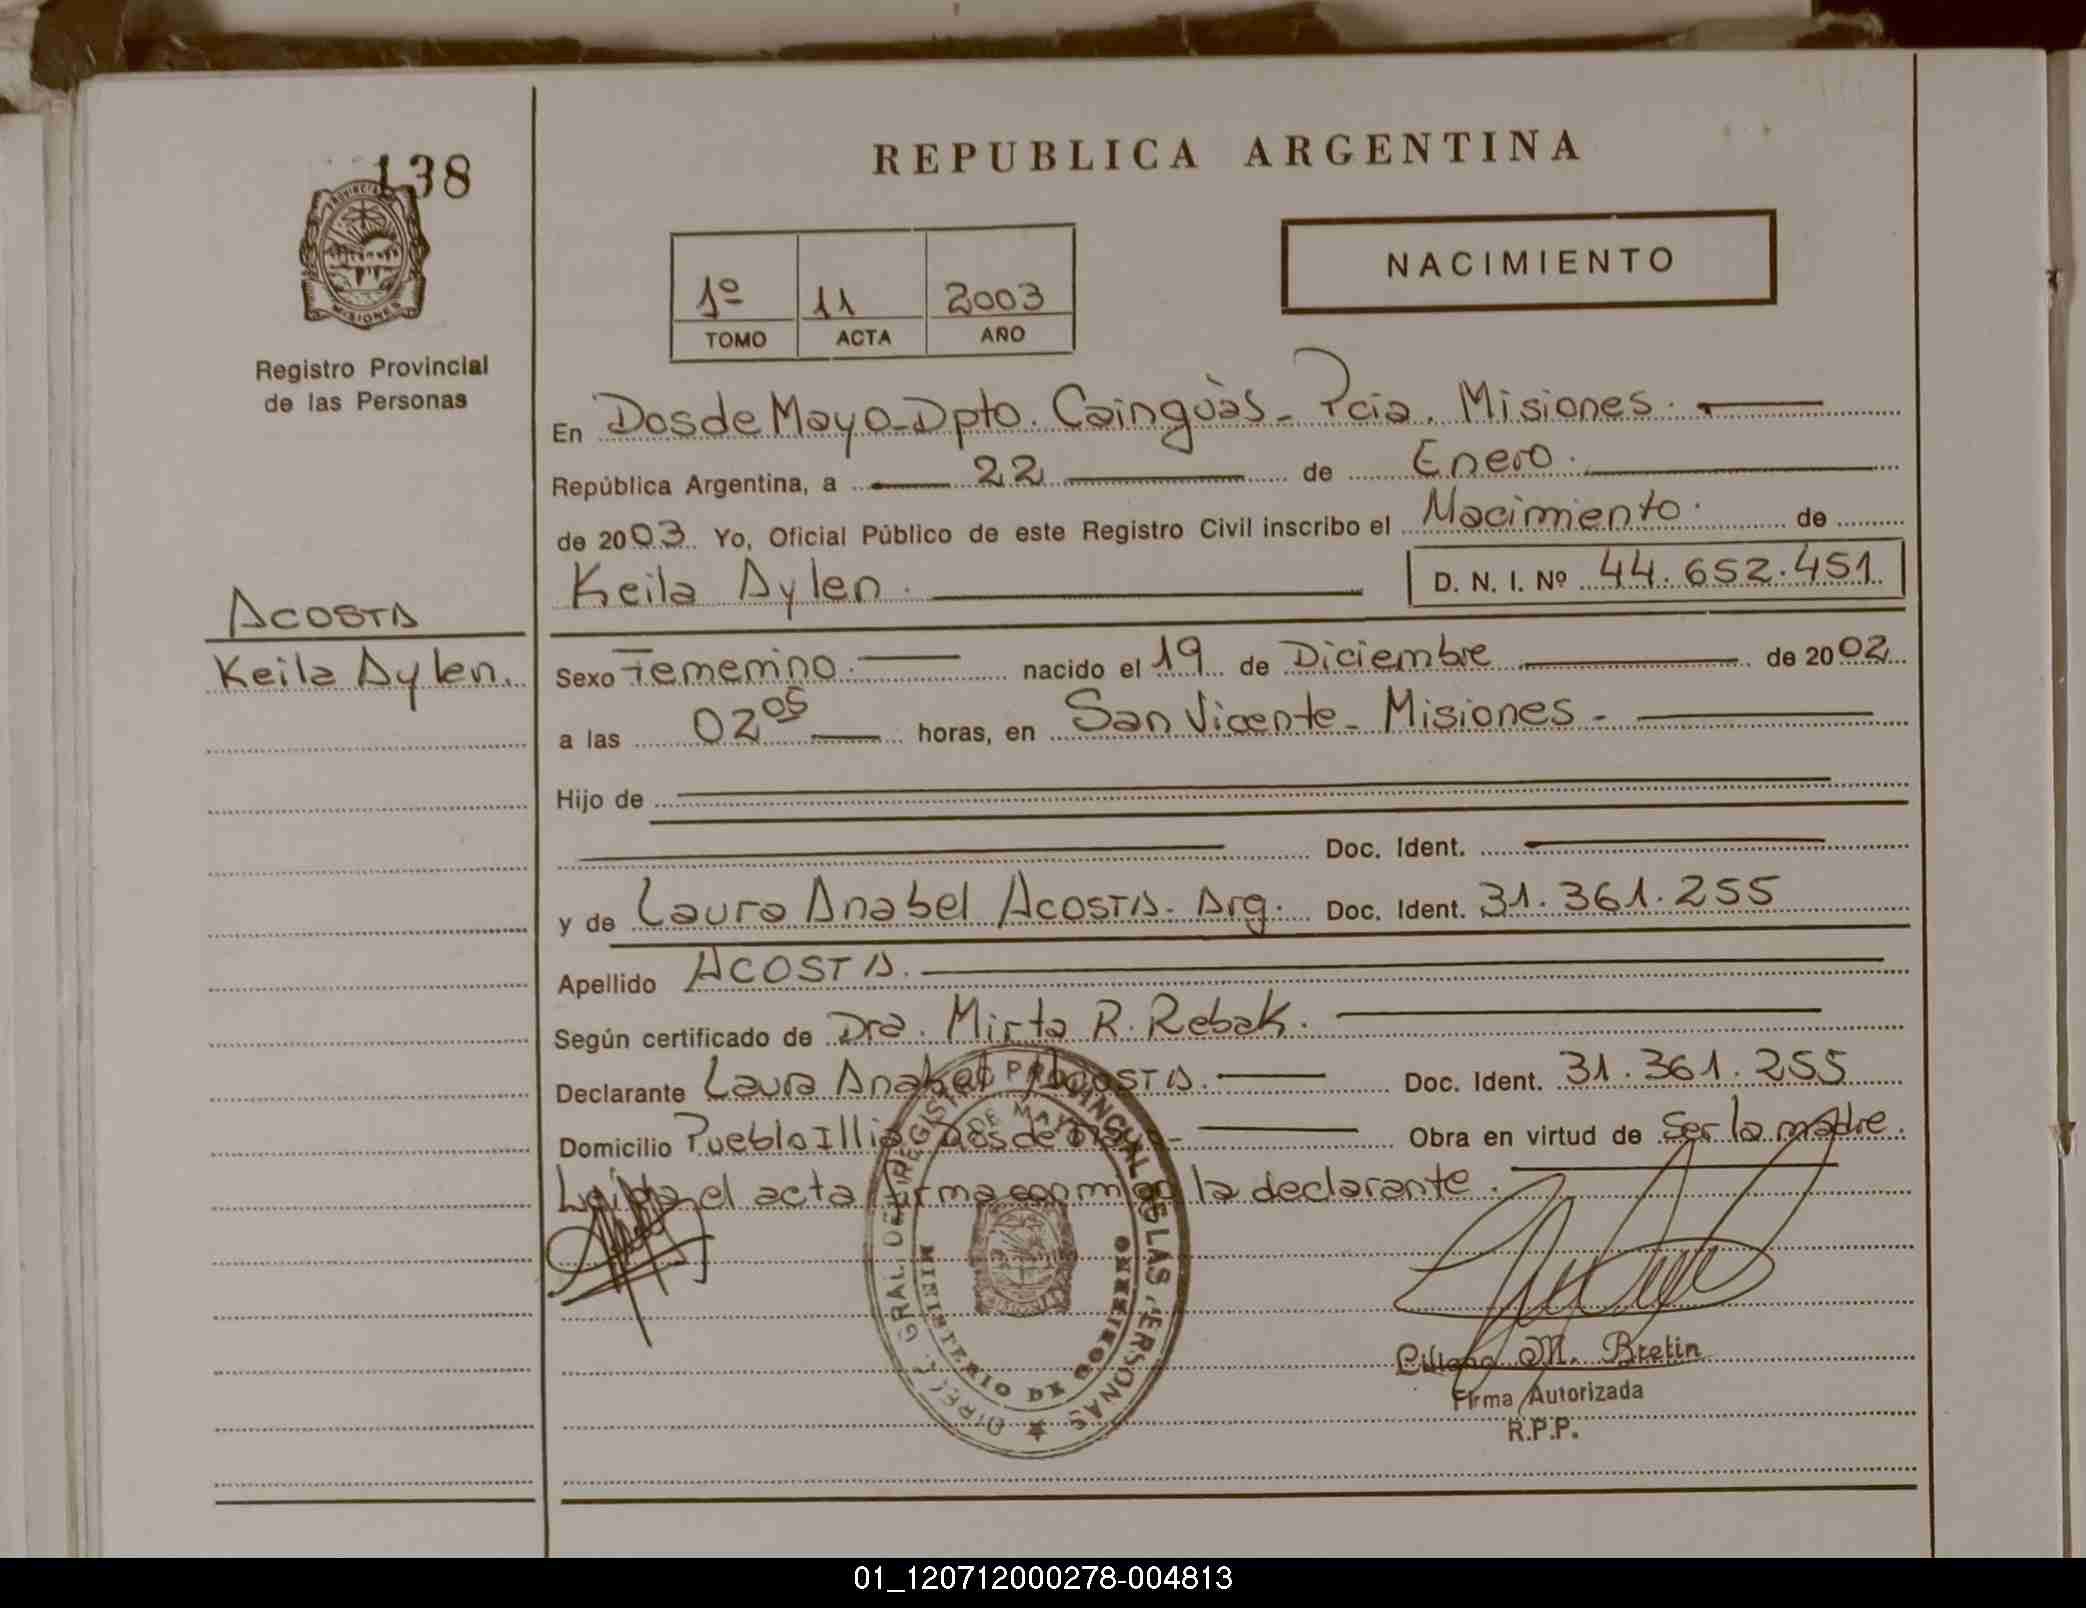 138
PROVINCIA
MISIONES
Registro Provincial
de las Personas
ACOSTA
Keila Aylen.
REPUBLICA ARGENTINA
NACIMIENTO
1º 11 2003
TOMO ACTA AÑO
En Dos de Mayo - Dpto. Cainguàs - Pcia. Misiones.
República Argentina, a 22 de Enero.
de 2003 Yo, Oficial Público de este Registro Civil inscribo el Nacimiento. de
Keila Aylen. D. N. I. Nº 44.652.451
Sexo Femenino. nacido el 19 de Diciembre de 2002
a las 02 05 horas, en San Vicente - Misiones -
Hijo de
Doc. Ident.
y de Laura Anabel Acosta. Arg. Doc. Ident. 31.361.255
Apellido ACOSTA.
Según certificado de Dra. Mirta R. Rebak.
Declarante Laura Anabel Acosta. Doc. Ident. 31.361.255
Domicilio Pueblo Illia Dos de Mayo - Obra en virtud de Ser la madre.
Leida el acta firma conmigo la declarante.
DIRECC. GRAL. DEL REGISTRO PROVINCIAL DE LAS PERSONAS
DE MAYO
MINISTERIO DE GOBIERNO
Liliana M. Bretin
Firma Autorizada
R.P.P.
01_120712000278-004813